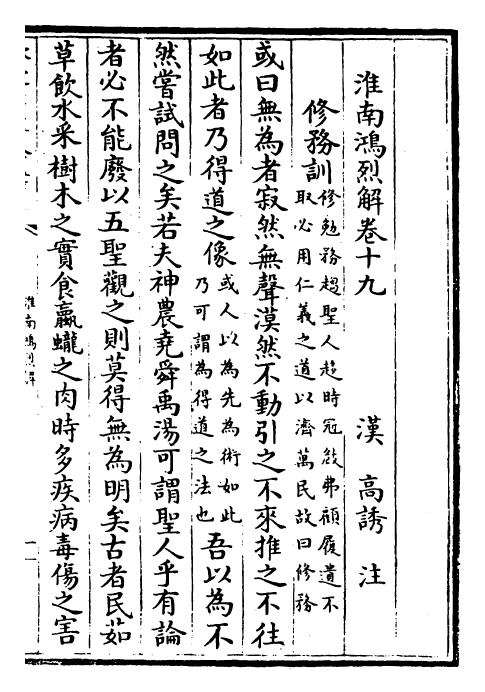 淮南鴻烈解卷十九
漢 高誘 注
修務訓修勉務趨聖人趍時冠㪇弗顧履遺不取必用仁義之道以濟萬民故曰修務
或曰無為者寂然無聲漠然不動引之不來推之不往
如此者乃得道之像或人以為先為術如此乃可謂為得道之法也吾以為不
然嘗試問之矣若夫神農堯舜禹湯可謂聖人乎有論
者必不能廢以五聖觀之則莫得無為明矣古者民茹
草飲水采樹木之實食蠃蠬之肉時多疾病毒傷之害
淮南鴻烈解